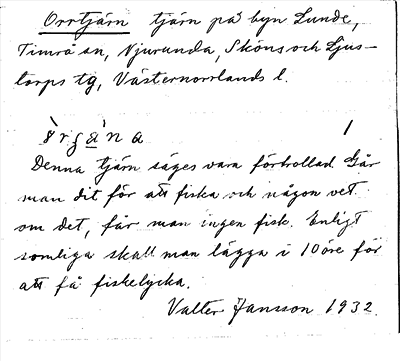 Orrtjärn tjärn på byn Lunde,
Timrå sn, Njurunda, Sköns och Ljus-
torps tg, Västernorrlands l.
1
Denna tjärn säges vara förtrollad. Går
man dit för att fiska och någon vet
om det, får man ingen fisk. Enligt
somliga skall man lägga i 10 öre för
att få fiskelycka.
Valter Jansson 1932.